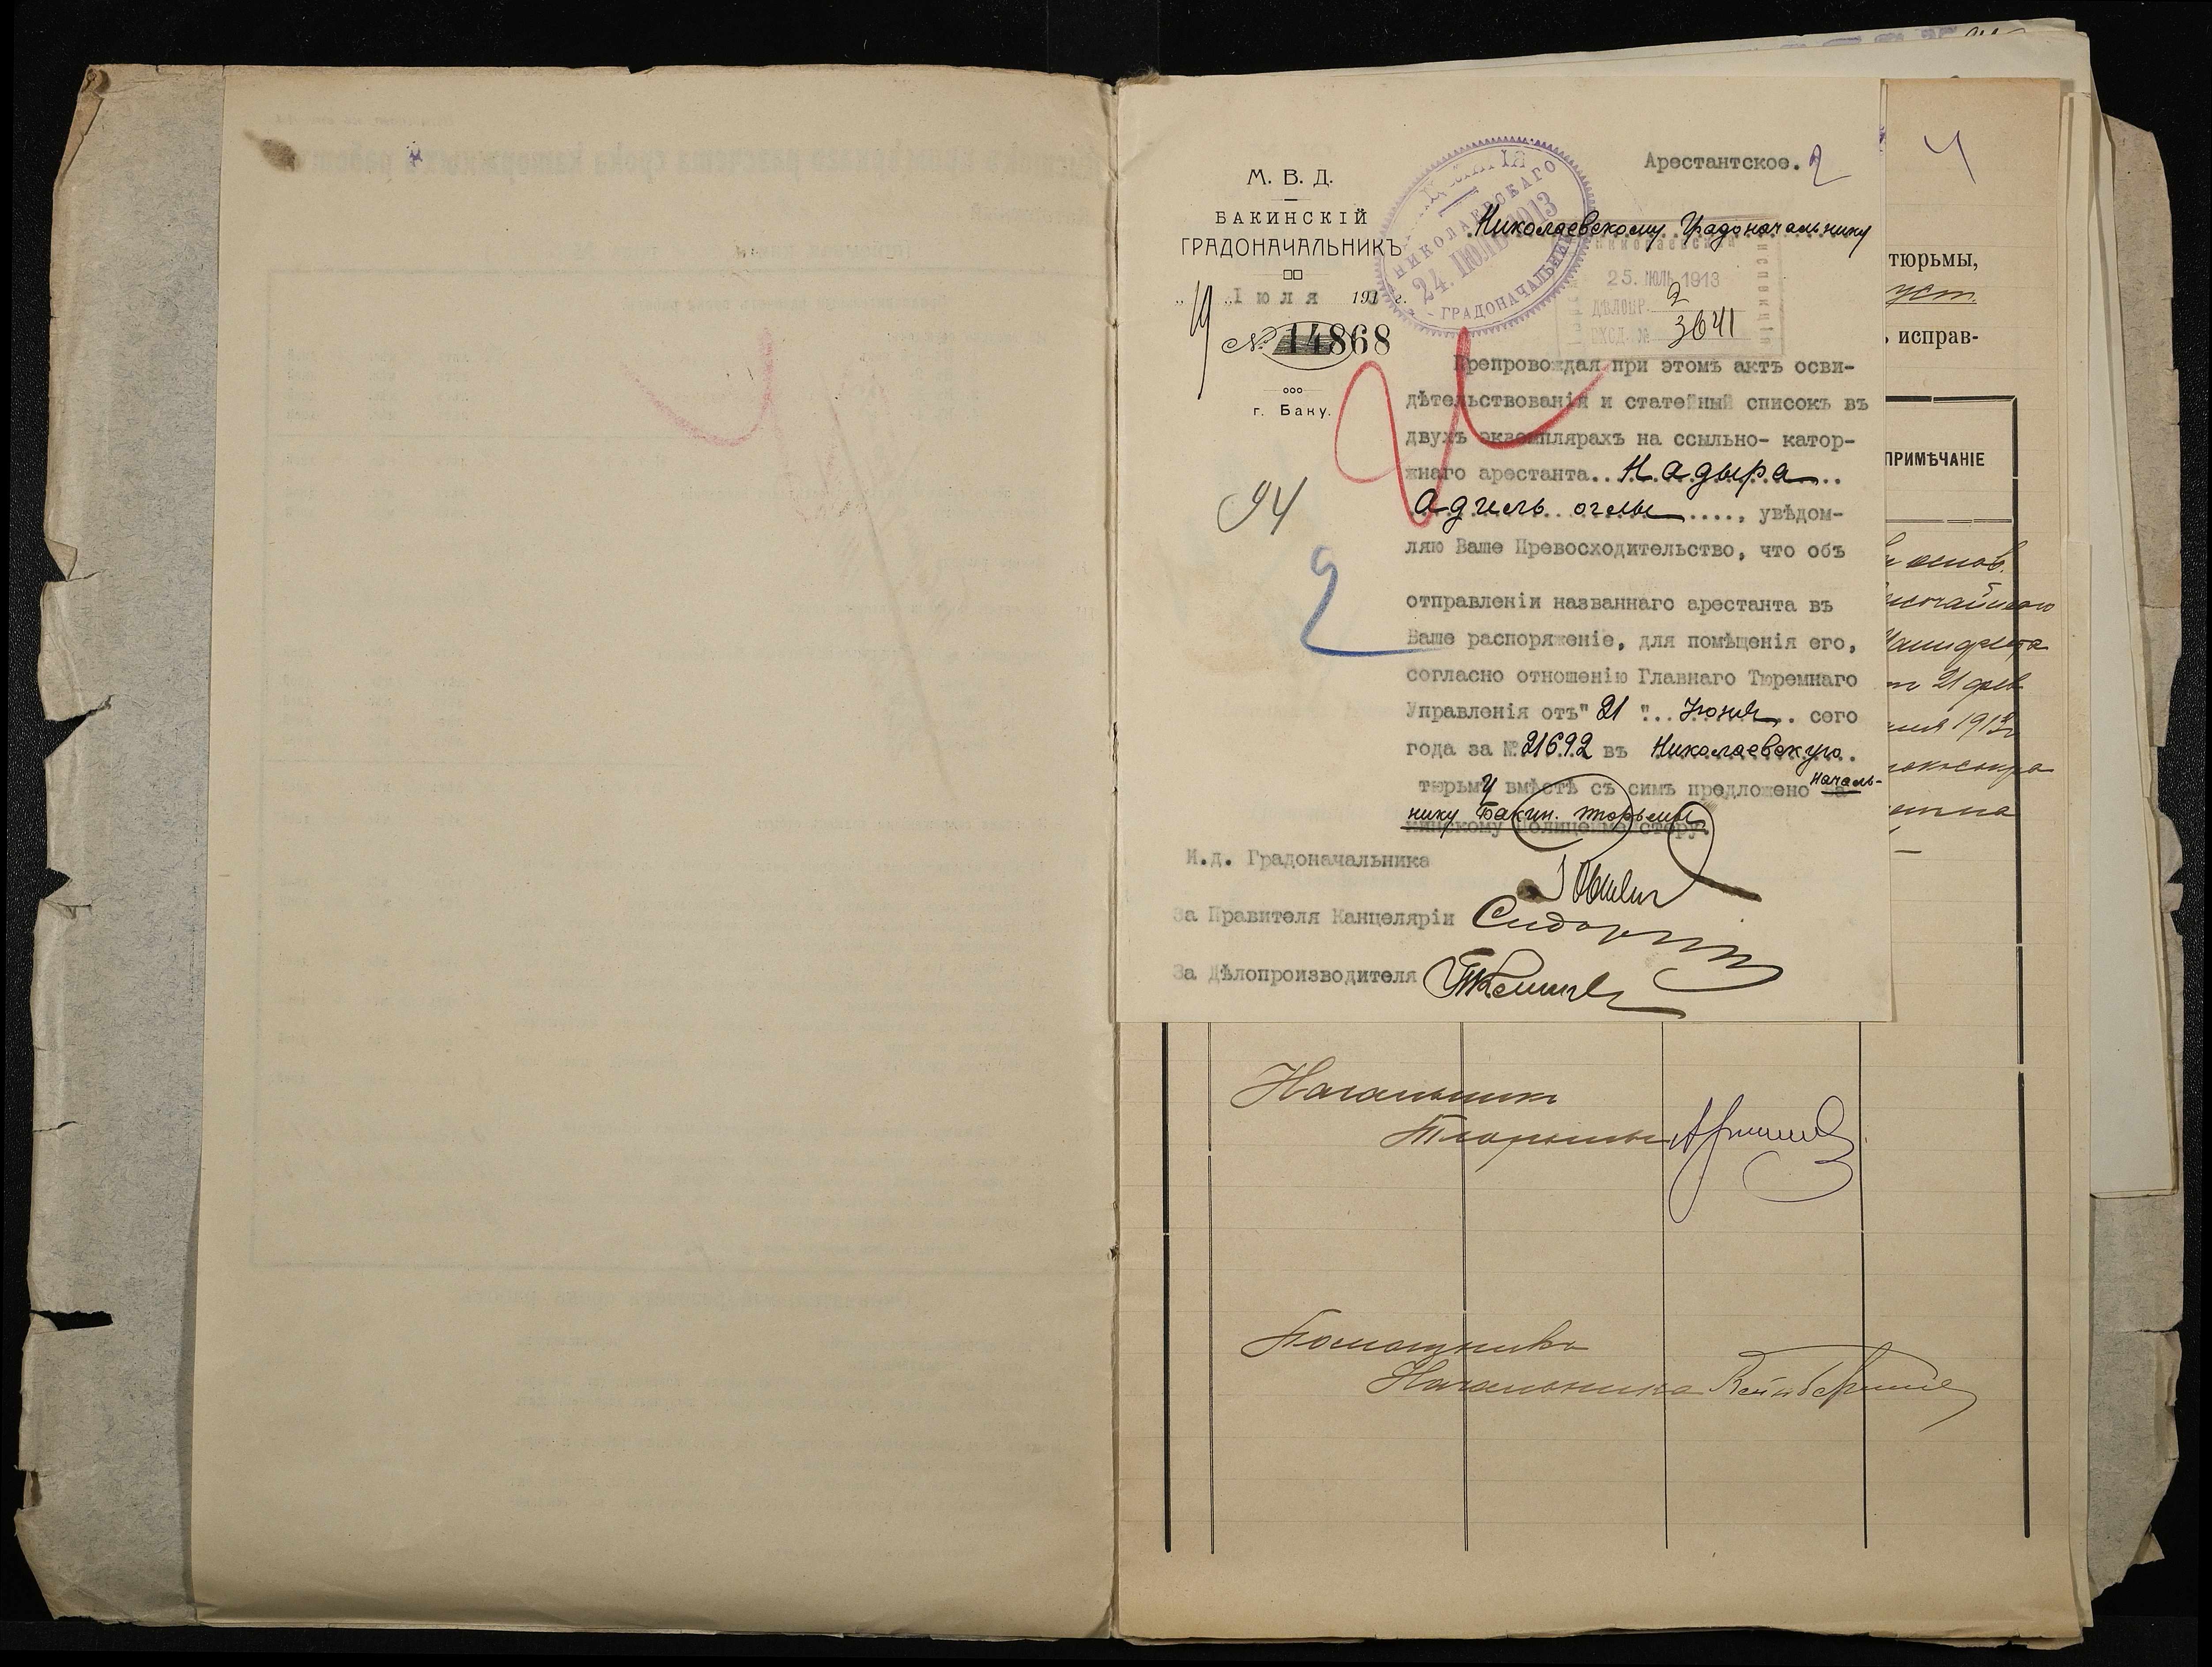 Арестантское. 2
М. В. Д.
БАКИНСКІЙ
ГРАДОНАЧАЛЬНИКЪ
19 Іюля 1913 г.
№ 14868
г. Баку.
94
2
КАНЦЕЛЯРІЯ НИКОЛАЕВСКАГО
24. ІЮЛЬ 1913
ГРАДОНАЧАЛЬНИКА
Николаевскому Градоначальнику
25. ІЮЛЬ 1913
ДѢЛОПР. 2
ВХОД. № 3641
Препровождая при этомъ актъ осви-
дѣтельствованія и статейный списокъ въ
двухъ экземплярахъ на ссыльно- катор-
жнаго арестанта.. Надыра ..
Адиль оглы ...., увѣдом-
ляю Ваше Превосходительство, что объ
отправленіи названнаго арестанта въ
Ваше распоряженіе, для помѣщенія его,
согласно отношенію Главнаго Тюремнаго
Управленія отъ" 21 ".. Іюня .. сего
года за № 21692 въ Николаевскую.
тюрьму вмѣстѣ съ симъ предложено Началь-
нику Бакин. тюрьмы
И.д. Градоначальника
За Правителя Канцеляріи
За Дѣлопроизводителя
4
тюрьмы,
уст.
исправ-
ПРИМѢЧАНІЕ
основ.
Манифеста
21 фев
1913
Начальникъ
Тюрьмы
Помощникъ
Начальника